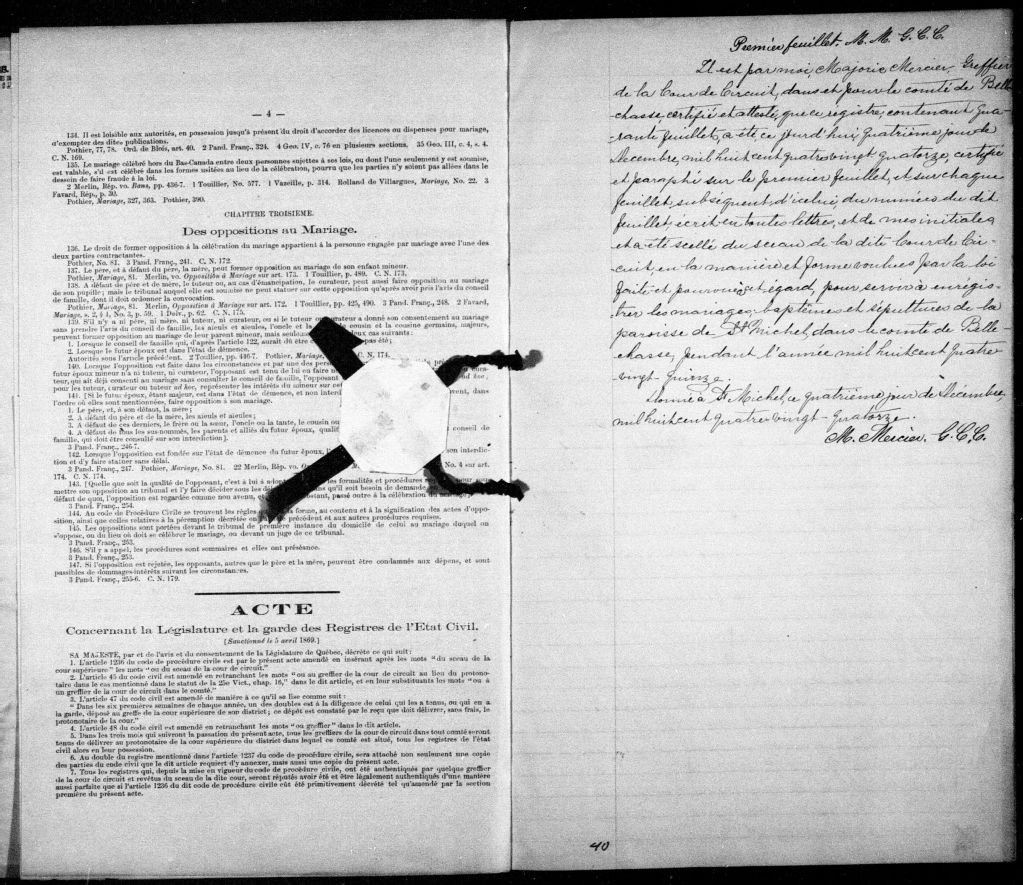 — 4 —
134. Il est loisible aux autorités, en possession jusqu'à présent du droit d'accorder des licences ou dispenses pour mariage,
d'exempter des dites publications.
Pothier, 77, 78. Ord. de Blois, art. 40. 2 Pand. Franç., 324. 4 Geo. IV, c. 76 en plusieurs sections. 35 Geo. III, c. 4, s. 4.
C. N. 169.
135. Le mariage célébré hors du Bas-Canada entre deux personnes sujettes à ses lois, ou dont l'une seulement y est soumise,
est valable, s'il est célébré dans les formes usitées au lieu de la célébration, pourvu que les parties n'y soient pas allées dans le
dessein de faire fraude à la loi.
2 Merlin, Rép. vo. Bans, pp. 436-7. 1 Touillier, No. 577. 1 Vazeille, p. 314. Rolland de Villargues, Mariage, No. 22. 3
Favard, Rép., p. 39.
Pothier, Mariage, 327, 363. Pothier, 390.
CHAPITRE TROISIEME.
Des oppositions au Mariage.
136. Le droit de former opposition à la célébration du mariage appartient à la personne engagée par mariage avec l'une des
deux parties contractantes.
Pothier, No. 81. 3 Pand. Franç., 241. C. N. 172.
137. Le père, et à défaut du père, la mère, peut former opposition au mariage de son enfant mineur.
Pothier, Mariage, 81. Merlin, vo. Opposition à Mariage sur art. 173. 1 Touillier, p. 489. C. N. 173.
138. A défaut de père et de mère, le tuteur ou, au cas d'émancipation, le curateur, peut aussi faire opposition au mariage
de son pupille; mais le tribunal auquel elle est soumise ne peut statuer sur cette opposition qu'après avoir pris l'avis du conseil
de famille, dont il doit ordonner la convocation.
Pothier, Mariage, 81. Merlin, Opposition à Mariage sur art. 172. 1 Touillier, pp. 425, 490. 3 Pand. Franç., 248. 2 Favard,
Mariage, s. 2, § 1, No. 3, p. 59. 1 Delv., p. 62. C. N. 175.
139. S'il n'y a ni père, ni mère, ni tuteur, ni curateur, ou si le tuteur ou curateur a donné son consentement au mariage
sans prendre l'avis du conseil de famille, les aïeuls et aïeules, l'oncle et la cousin et la cousine germains, majeurs,
peuvent former opposition au mariage de leur parent mineur, mais seulement deux cas suivants:
1. Lorsque le conseil de famille qui, d'après l'article 122, aurait dû être pas été;
2. Lorsque le futur époux est dans l'état de démence.
Autorités sous l'article précédent. 2 Touillier, pp. 446-7. Pothier, Mariage, C. N. 174.
140. Lorsque l'opposition est faite dans les circonstances et par une des
futur époux mineur n'a ni tuteur, ni curateur, l'opposant est tenu de lui en faire
teur, qui ait déjà consenti au mariage sans consulter le conseil de famille, l'opposant
pour les tuteur, curateur ou tuteur ad hoc, représenter les intérêts du mineur sur
141. [Si le futur époux, étant majeur, est dans l'état de démence, et non interdit dans
l'ordre où elles sont mentionnées, faire opposition à son mariage.
1. Le père, et, à son défaut, la mère;
2. A défaut du père et de la mère, les aïeuls et aïeules;
3. A défaut de ces derniers, le frère ou la sœur, l'oncle ou la tante, le cousin ou
4. A défaut de tous les sus-nommés, les parents et alliés du futur époux, conseil de
famille, qui doit être consulté sur son interdiction].
3 Pand. Franç., 246-7.
142. Lorsque l'opposition est fondée sur l'état de démence du futur époux, son interdic-
tion et d'y faire statuer sans délai.
3 Pand. Franç., 247. Pothier, Mariage, No. 81. 22 Merlin, Rép. vo. No. 4 sur art.
174. C. N. 174.
143. [Quelle que soit la qualité de l'opposant, c'est à lui à les formalités et procédures
mettre son opposition au tribunal et l'y faire décider sous les qu'il soit besoin de
défaut de quoi, l'opposition est regardée comme non avenue, passé outre à la célébration du mariage,]
3 Pand. Franç., 254.
144. Au code de Procédure Civile se trouvent les règles forme, au contenu et à la signification des actes d'oppo-
sition, ainsi que celles relatives à la péremption décrétée en précédent et aux autres procédures requises.
145. Les oppositions sont portées devant le tribunal de première instance du domicile de celui au mariage duquel on
s'oppose, ou du lieu où doit se célébrer le mariage, ou devant un juge de ce tribunal.
3 Pand. Franç., 253.
146. S'il y a appel, les procédures sont sommaires et elles ont préséance.
3 Pand. Franç., 253.
147. Si l'opposition est rejetée, les opposants, autres que le père et la mère, peuvent être condamnés aux dépens, et sont
passibles de dommages-intérêts suivant les circonstances.
3 Pand. Franç., 255-6. C. N. 179.
ACTE
Concernant la Législature et la garde des Registres de l'Etat Civil.
[Sanctionné le 5 avril 1869.]
SA MAJESTE, par et de l'avis et du consentement de la Législature de Québec, décrète ce qui suit:
1. L'article 1236 du code de procédure civile est par le présent acte amendé en insérant après les mots "du sceau de la
cour supérieure" les mots "ou du sceau de la cour de circuit."
2. L'article 45 du code civil est amendé en retranchant les mots "ou au greffier de la cour de circuit au lieu du protono-
taire dans le cas mentionné dans le statut de la 25e Vict., chap. 16," dans le dit article, et en leur substituant les mots "ou à
un greffier de la cour de circuit dans le comté."
3. L'article 47 du code civil est amendé de manière à ce qu'il se lise comme suit:
"Dans les six premières semaines de chaque année, un des doubles est à la diligence de celui qui les a tenus, ou qui en a
la garde, déposé au greffe de la cour supérieure de son district; ce dépôt est constaté par le reçu que doit délivrer, sans frais, le
protonotaire de la cour."
4. L'article 48 du code civil est amendé en retranchant les mots "ou greffier" dans le dit article.
5. Dans les trois mois qui suivront la passation du présent acte, tous les greffiers de la cour de circuit dans tout comté seront
tenus de délivrer au protonotaire de la cour supérieure du district dans lequel ce comté est situé, tous les registres de l'état
civil alors en leur possession.
6. Au double du registre mentionné dans l'article 1237 du code de procédure civile, sera attaché non seulement une copie
des parties du code civil que le dit article requiert d'y annexer, mais aussi une copie du présent acte.
7. Tous les registres qui, depuis la mise en vigueur du code de procédure civile, ont été authentiqués par quelque greffier
de la cour de circuit et revêtus du sceau de la dite cour, seront réputés avoir été et être légalement authentiqués d'une manière
aussi parfaite que si l'article 1236 du dit code de procédure civile eût été primitivement décrété tel qu'amendé par la section
première du présent acte.
Premier feuillet. M. M. G. C. C.
Il est par moi, Majorie Mercier, Greffier
de la Cour de Circuit, dans et pour le comté de Belle-
chasse, certifié et attesté, que ce registre, contenant qua-
rante feuillets, a été ce jourd'hui quatrième jour de
Décembre, mil huit cent quatre vingt quatorze, certifié
et paraphé sur le premier feuillet, et sur chaque
feuillet subsequent, d'icelui, du numéro du dit
feuillet, écrit en toutes lettres, et de mes initiales
et a été scellé du sceau de la dite Cour de Cir-
cuit, en la manière et forme voulues par la loi
faite et pourvue à cet égard, pour servir à enregis-
trer les mariages, baptêmes et sépultures de la
paroisse de St Michel, dans le comté de Belle-
chasse, pendant l'année mil huit cent quatre
vingt-quinze.
Donné à St Michel, ce quatrième jour de Décembre,
mil huit cent quatre vingt-quatorze.
M. Mercier. G. C. C.
40